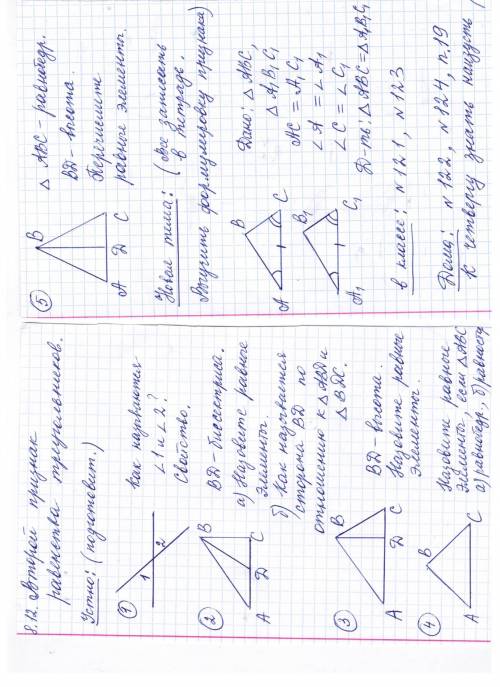 8.12. Второй признак
равенства треугольников.
Устно: (подготовит.)
1
1
2
Как называются
∠1 и ∠2?
Свойство.
2
B
A
D
C
BD - биссектриса.
а) Назовите равные
элементы.
б) Как называется
сторона BD по
отношению к △ABD и
△BDC.
3
B
A
D
C
BD - высота.
Назовите равные
элементы.
4
B
A
C
Назовите равные
элементы, если △ABC
а) равнобедр., б) равностор
5
B
A
D
C
△ ABC - равнобедр.
BD - высота.
Перечислите
равные элементы.
Новая тема: (Все записать
в тетрадь.
Выучить формулировку признака)
B
A
C
B₁
A₁
C₁
Дано: △ABC,
△A₁B₁C₁
AC = A₁C₁
∠A = ∠A₁
∠C = ∠C₁
Д-ть: △ABC = △A₁B₁C₁
в классе: №121, №123
Дома: №122, №124, п.19
К четвергу знать наизусть